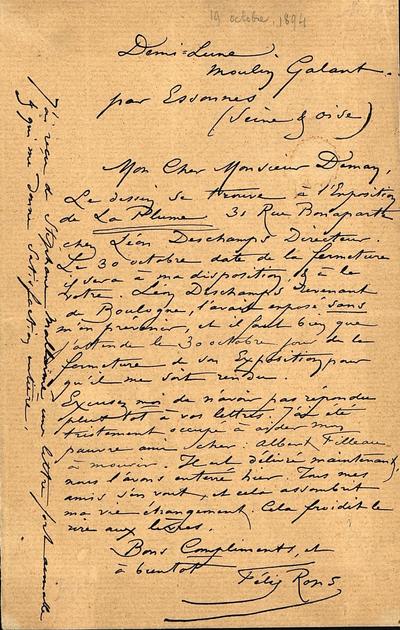 19 octobre, 1894
Demi=Lune.
Moulin Galant.
par Essonnes
(Seine & Oise)
Mon Cher Monsieur Deman,
Le dessin se trouve à l'Exposition
de La Plume 31 Rue Bonaparte
chez Léon Deschamps Directeur.
Le 30 octobre date de la fermeture
il sera à ma disposition, & à la
vôtre. Léon Deschamps revenant
de Boulogne, l'avait exposé sans
m'en prévenir, et il faut bien que
j'attende le 30 octobre jour de la
fermeture de son Exposition pour
qu'il me soit rendu.
Excusez moi de n'avoir pas répondu
plutot à vos lettres. J'ai été
tristement occupé à aider mon
pauvre ami & cher Albert Filleau
à mourir. Il est délivré maintenant,
nous l'avons enterré hier. Tous mes
amis s'en vont, et cela assombrit
ma vie changement. Cela froidit le
rire aux lèvres.
Bons Compliments, et
à bientot
Félix Rops
J'ai reçu de Stéphane Mallarmé une lettre fort aimable
& qui me donne satisfaction entière.